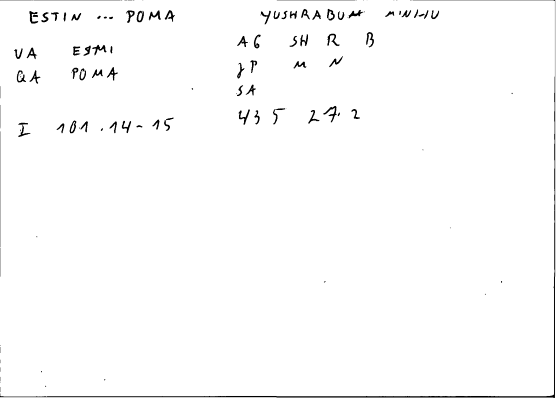 ESTIN ... POMA YUSHRABUM MINHU
VA ESMI AG SH R B
QA POMA JP M N
SA
I 101.14-15 435 27.2